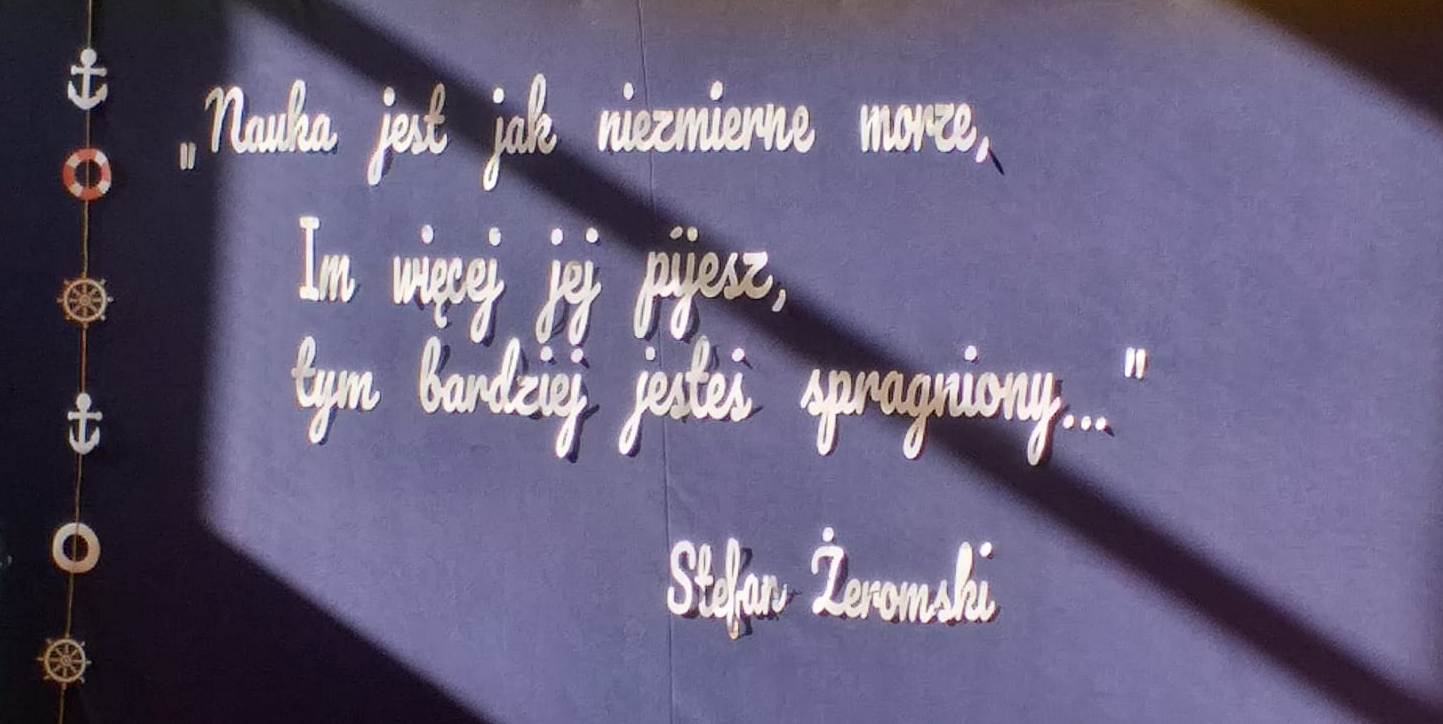 „Nauka jest jak niezmierne morze,
Im więcej jej pijesz,
tym bardziej jesteś spragniony..."
Stefan Żeromski